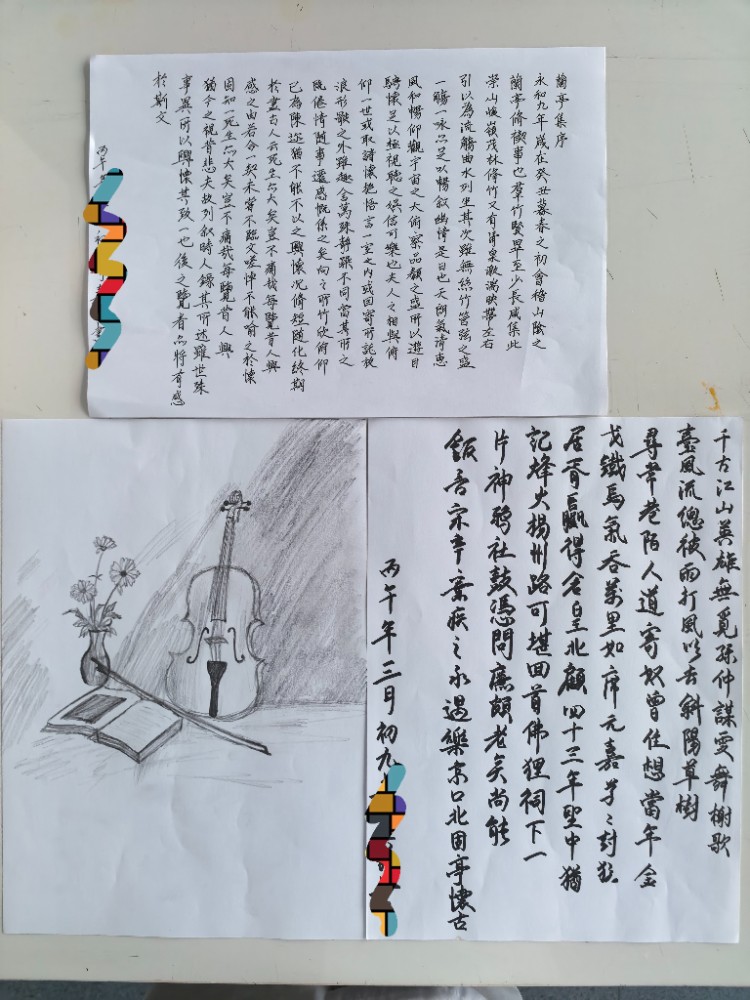 蘭亭集序
永和九年歲在癸丑暮春之初會稽山陰之
蘭亭修禊事也羣竹賢畢至少長咸集此
崇山峻嶺茂林修竹又有清泉激湍映帶左右
引以為流觴曲水列坐其次雖無絲竹管弦之盛
一觴一詠亦足以暢敘幽情是日也天朗氣清惠
風和暢仰觀宇宙之大俯察品類之盛所以遊目
騁懷足以極視聽之娛信可樂也夫人之相與俯
仰一世或取諸懷抱悟言一室之內或因寄所託放
浪形骸之外雖趣舍萬殊靜躁不同當其所之
既倦情隨事遷感慨係之矣向之所竹欣俯仰
已為陳迹猶不能不以之興懷況修短隨化終期
於盡古人云死生亦大矣豈不痛哉每覽昔人興
感之由若合一契未嘗不臨文嗟悼不能喻之於懷
因知一死生亦大矣豈不痛哉每覽昔人興
猶今之視昔悲夫故列敘時人錄其所述雖世殊
事異所以興懷其致一也後之覽者亦將有感
於斯文
丙午
千古江山英雄無覓孫仲謀處舞榭歌
臺風流總被雨打風吹去斜陽草樹
尋常巷陌人道寄奴曾住想當年金
戈鐵馬氣吞萬里如虎元嘉草草封狼
居胥贏得倉皇北顧四十三年望中猶
記烽火揚州路可堪回首佛狸祠下一
片神鴉社鼓憑問廉頗老矣尚能
飯否宋辛棄疾之永遇樂京口北固亭懷古
丙午年三月初九